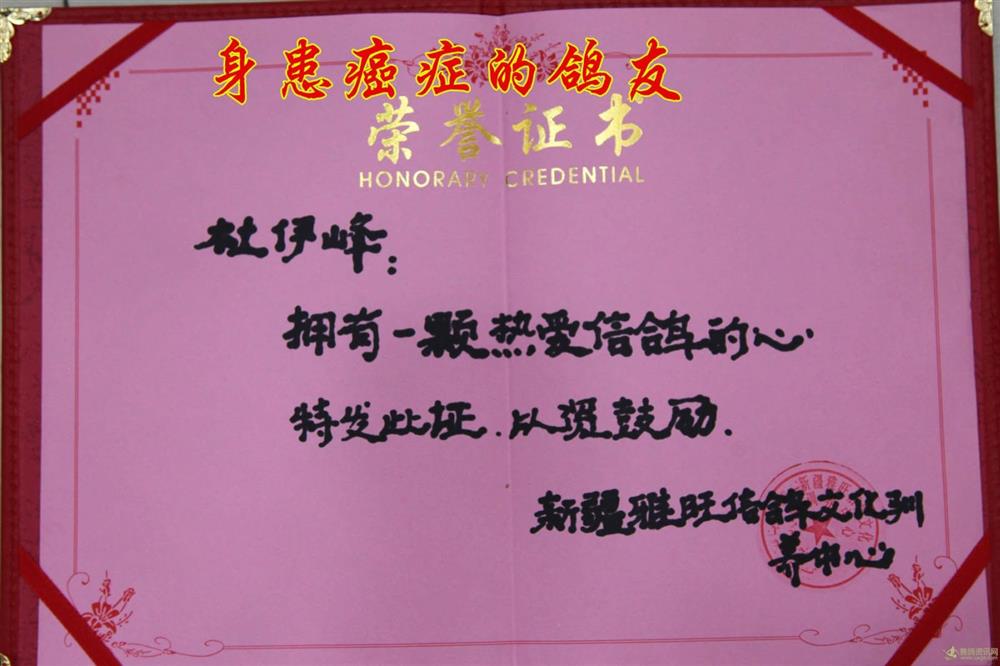 身患癌症的鸽友
荣誉证书
HONORARY CREDENTIAL
杜伊峰:
拥有一颗热爱信鸽的心
特发此证.以资鼓励.
新疆雅旺信鸽文化驯
养中心
赛鸽资讯网